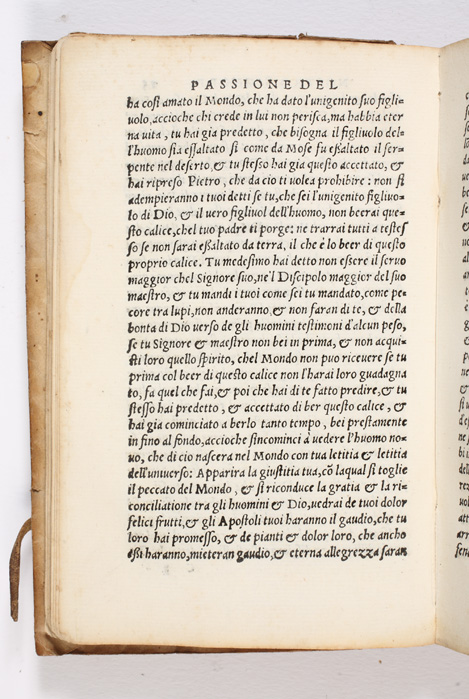 PASSIONE DEL
ha così amato il Mondo, che ha dato l'unigenito suo figli=
uolo, accioche chi crede in lui non perisca, ma habbia eter
na uita, tu hai gia predetto, che bisogna il figliuolo del=
l'huomo sia essaltato sì come da Mose fu essaltato il ser=
pente nel deserto, & tu stesso hai gia questo accettato, &
hai ripreso Pietro, che da cio ti uolea prohibire: non si
adempieranno i tuoi detti se tu, che sei l'unigenito figliuo=
lo di Dio, & il uero figliuol dell'huomo, non beerai que=
sto calice, chel tuo padre ti porge: ne trarrai tutti a testes
so se non sarai essaltato da terra, il che è lo beer di questo
proprio calice. Tu medesimo hai detto non essere il seruo
maggior chel Signore suo, ne'l Discipolo maggior del suo
maestro, & tu mandi i tuoi come sei tu mandato, come pe=
core tra lupi, non anderanno, & non faran di te, & della
bonta di Dio uerso de gli huomini testimoni d'alcun peso,
se tu Signore & maestro non bei in prima, & non acqui=
sti loro quello spirito, chel Mondo non puo riceuere se tu
prima col beer di questo calice non l'harai loro guadagna
to, fa quel che fai, & poi che hai di te fatto predire, & tu
stesso hai predetto, & accettato di ber questo calice, &
hai gia cominciato a berlo tanto tempo, bei prestamente
in fino al fondo, accioche sincominci à uedere l'huomo no=
uo, che di cio nascera nel Mondo con tua letitia & letitia
dell'uniuerso: Apparira la giustitia tua, cõ laqual si toglie
il peccato del Mondo, & si riconduce la gratia & la ri=
conciliatione tra gli huomini & Dio, uedrai de tuoi dolor
felici frutti, & gli Apostoli tuoi haranno il gaudio, che tu
loro hai promesso, & de pianti & dolor loro, che ancho
essi haranno, mieteran gaudio, & eterna allegrezza saran